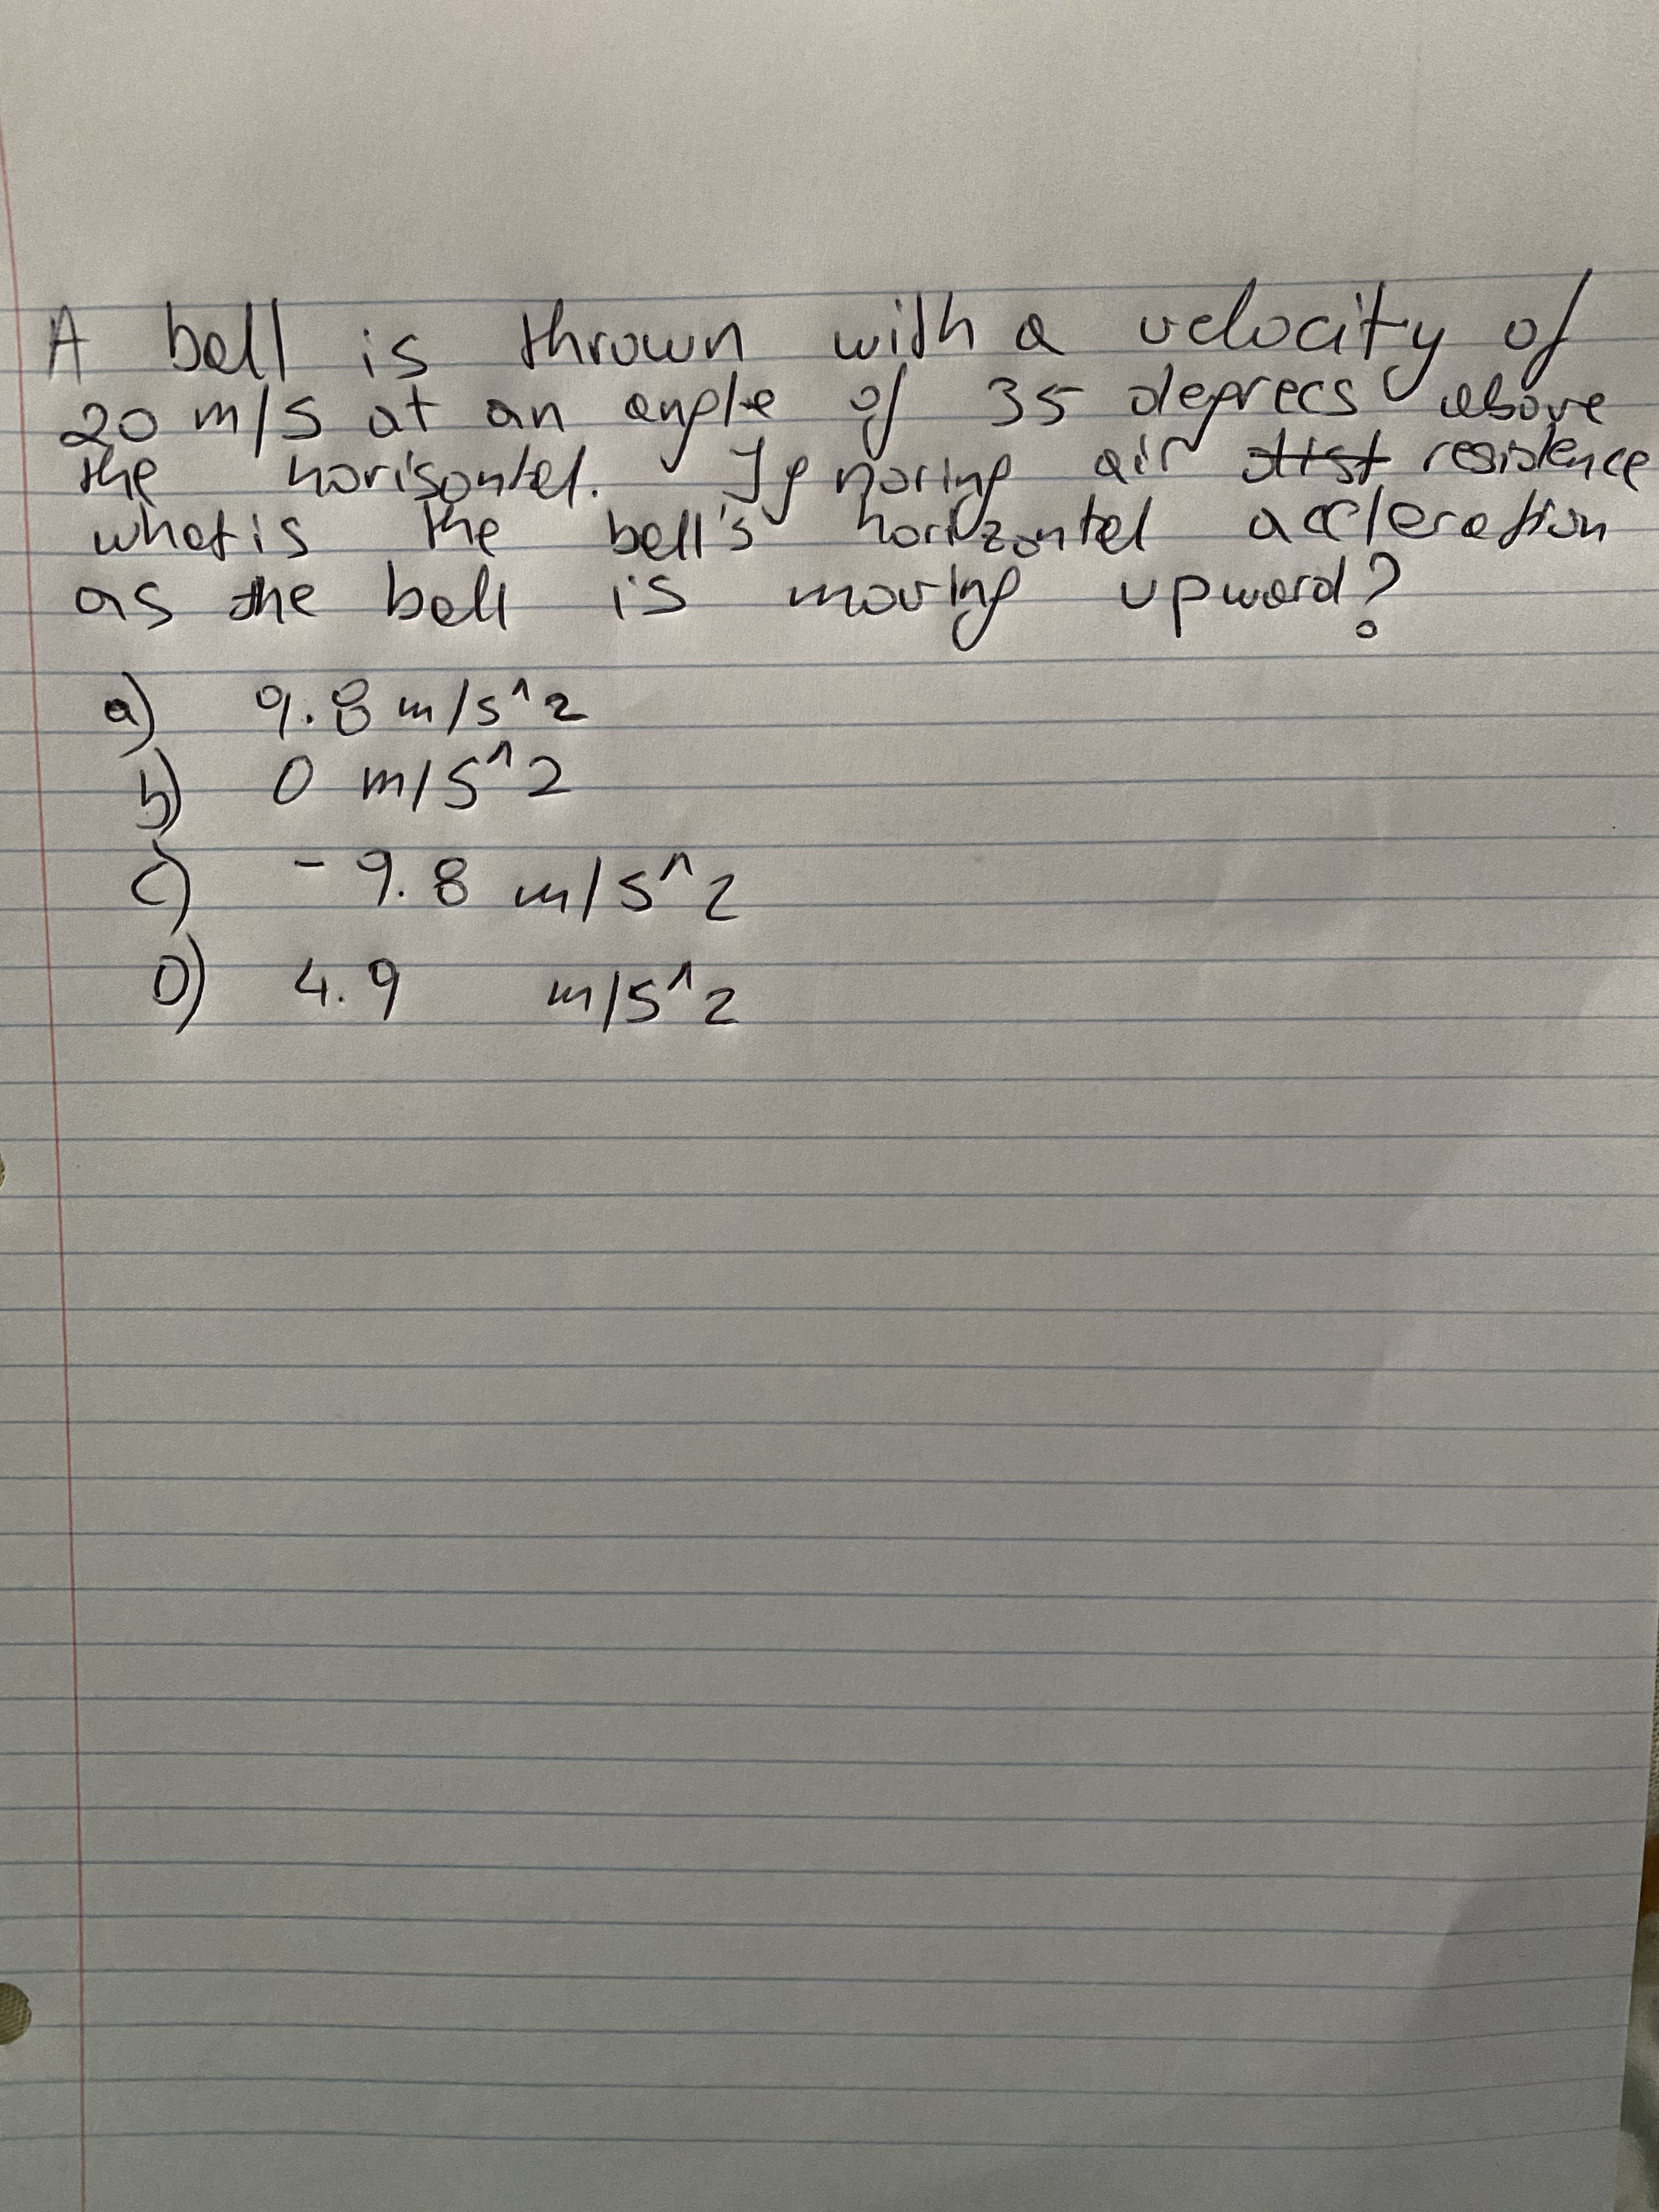 A ball is thrown with a velocity of
20 m/s at an angle of 35 degrees above
the horisontal. Ignoring air resistence
what is the ball's horizontal accleration
as the ball is moving upward?
a) 9.8 m/s^2
b) 0 m/s^2
c) -9.8 m/s^2
D) 4.9 m/s^2